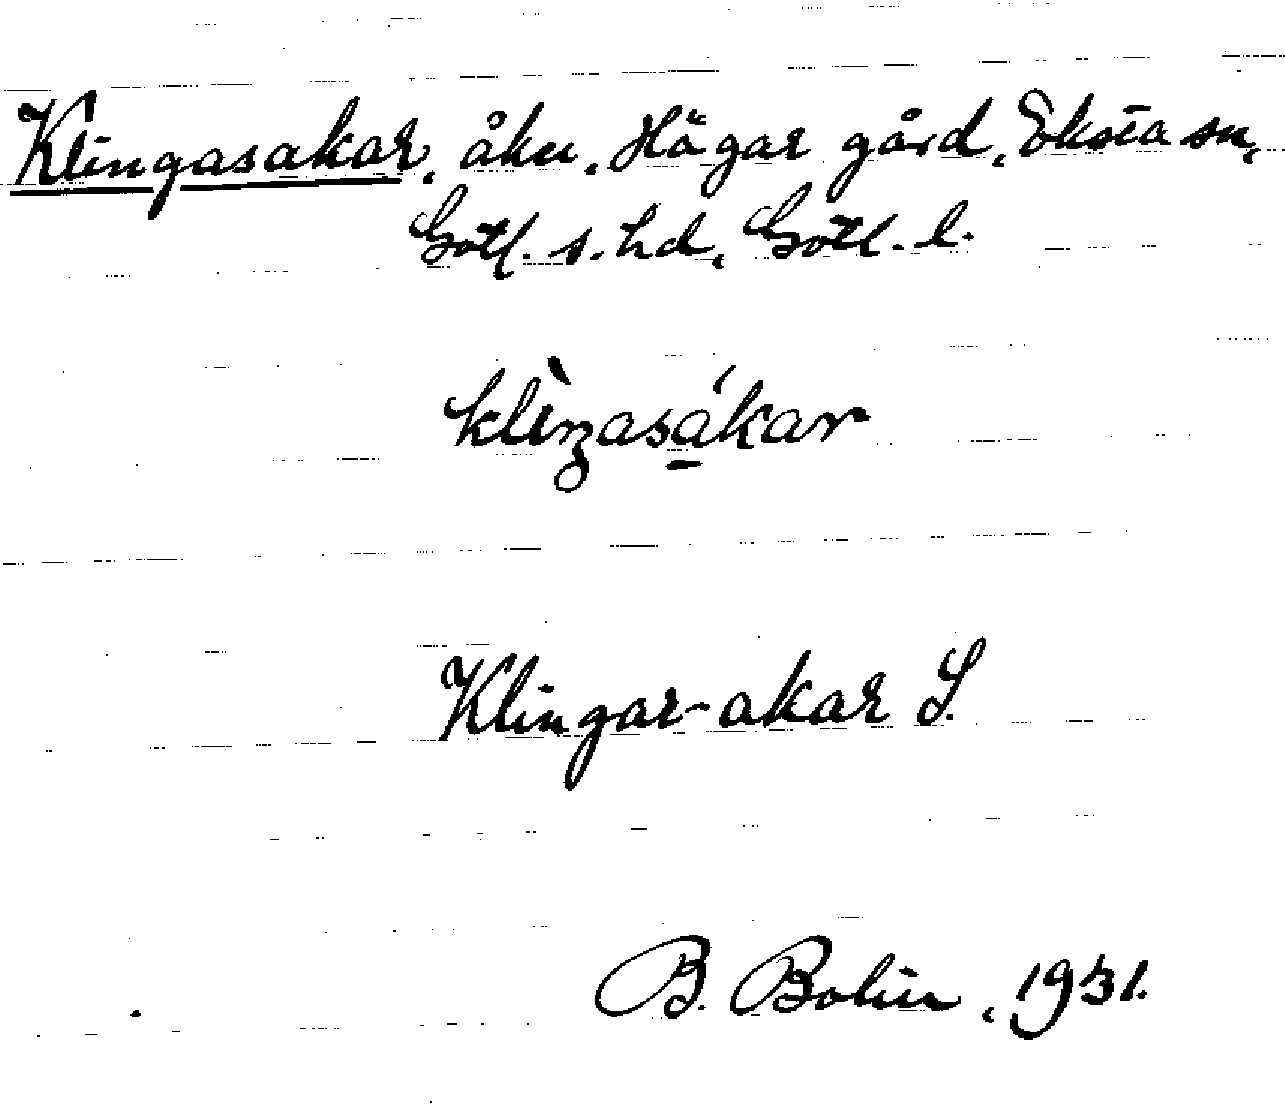 Klingasakar, åker, Hägar gård, Eksta sn,
Gotl. s. hd, Gotl. l.
klìŋasákar
Klingar-akar S.
B. Bolin, 1931.